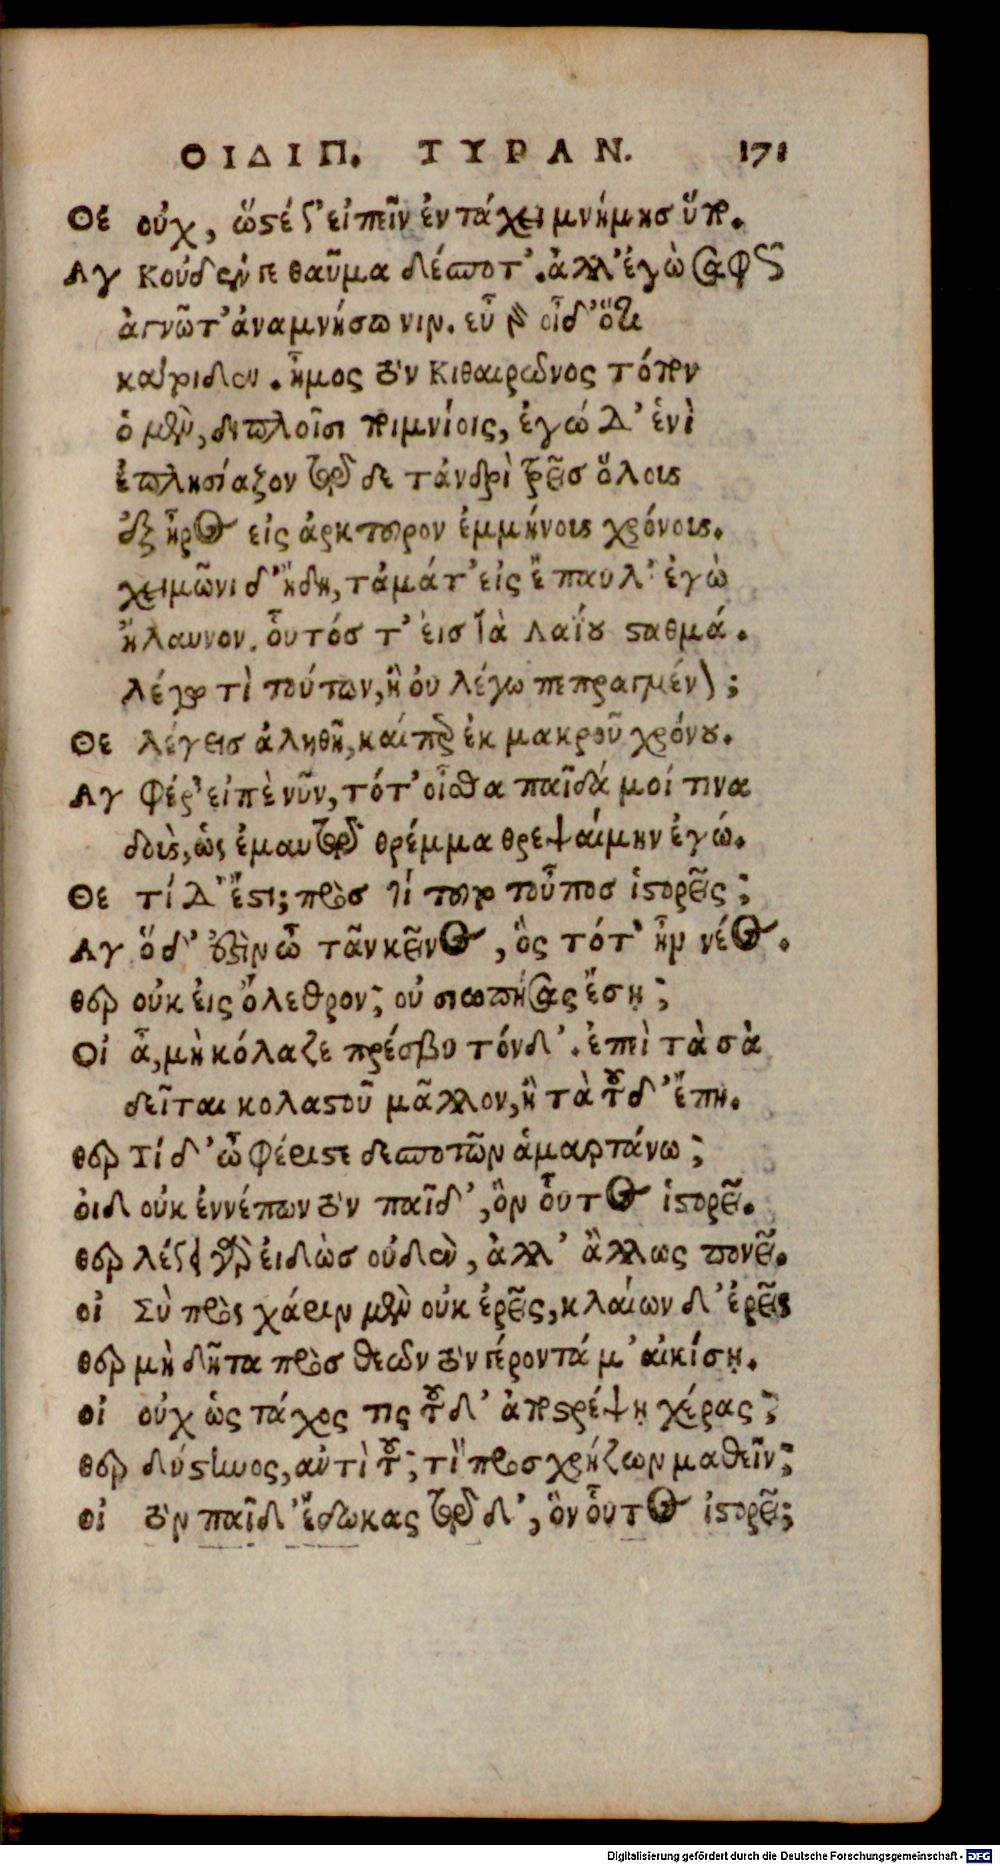 ΟΙΔΙΠ. ΤΥΡΑΝ. 171
Θε οὐχ, ὥστέ γ' εἰπεῖν ἐν τάχει μνήμησ ὕπο.
Αγ Κοὐδέν γε θαῦμα δέσποτ'. ἀλλ' ἐγὼ σαφῶς
ἀγνῶτ' ἀναμνήσω νιν. εὖ γὰρ οἶδ' ὅτι
κάτοιδεν. ἦμος τὸν Κιθαιρῶνος τόπον
ὁ μὲν, διπλοῖσι ποιμνίοις, ἐγώ δ' ἑνὶ
ἐπλησίαζον τῷδε τἀνδρὶ τρεῖσ ὅλοις
ἐξ ἦρος εἰς ἀρκτοῦρον ἐμμήνοις χρόνοις.
χειμῶνι δ' ἤδη, τἀμά τ' εἰς ἔπαυλ' ἐγὼ
ἤλαυνον. οὗτόσ τ' ἐισ τὰ Λαΐου σταθμά.
λέγω τὶ τούτων, ἢ οὐ λέγω πεπραγμένον;
Θε λέγεισ ἀληθῆ, καίπερ ἐκ μακροῦ χρόνου.
Αγ Φέρ' εἰπὲ νῦν, τότ' οἶσθα παῖδά μοί τινα
δοὺς, ὡς ἐμαυτῷ θρέμμα θρεψαίμην ἐγώ.
Θε τί δ' ἔστι; πρὸσ τί τοῦτο τοὖποσ ἱστορεῖς;
Αγ ὅδ' ἐστὶν ὦ τᾶν κεῖνος, ὃς τότ' ἦν νέος.
θερ οὐκ ἐις ὄλεθρον; οὐ σιωπήσας ἔσῃ;
Οἰ ἆ, μὴ κόλαζε πρέσβυ τόνδ'. ἐπεὶ τὰ σὰ
δεῖται κολαστοῦ μᾶλλον, ἢ τὰ τοῦδ' ἔπη.
θερ Τί δ' ὦ φέριστε δεσποτῶν ἁμαρτάνω;
οιδ οὐκ ἐννέπων τὸν παῖδ', ὃν οὗτος ἱστορεῖ.
θερ λέγει γὰρ ἐιδὼσ οὐδὲν, ἀλλ' ἄλλως πονεῖ.
οἰ Σὺ πρὸς χάριν μὲν οὐκ ἐρεῖς, κλαίων δ' ἐρεῖς
θερ μὴ δῆτα πρὸσ θεῶν τὸν γέροντά μ' αἰκίσῃ.
οἰ οὐχ ὡς τάχος τις τοῦδ' ἀποστρέψῃ χέρας;
θερ δύστηνος, αὐτὶ τοῦ; τὶ προσχρήζων μαθεῖν;
οἰ τὸν παῖδ' ἔδωκας τῷδ', ὃν οὗτος ἱστορεῖ;
Digitalisierung gefördert durch die Deutsche Forschungsgemeinschaft - DFG